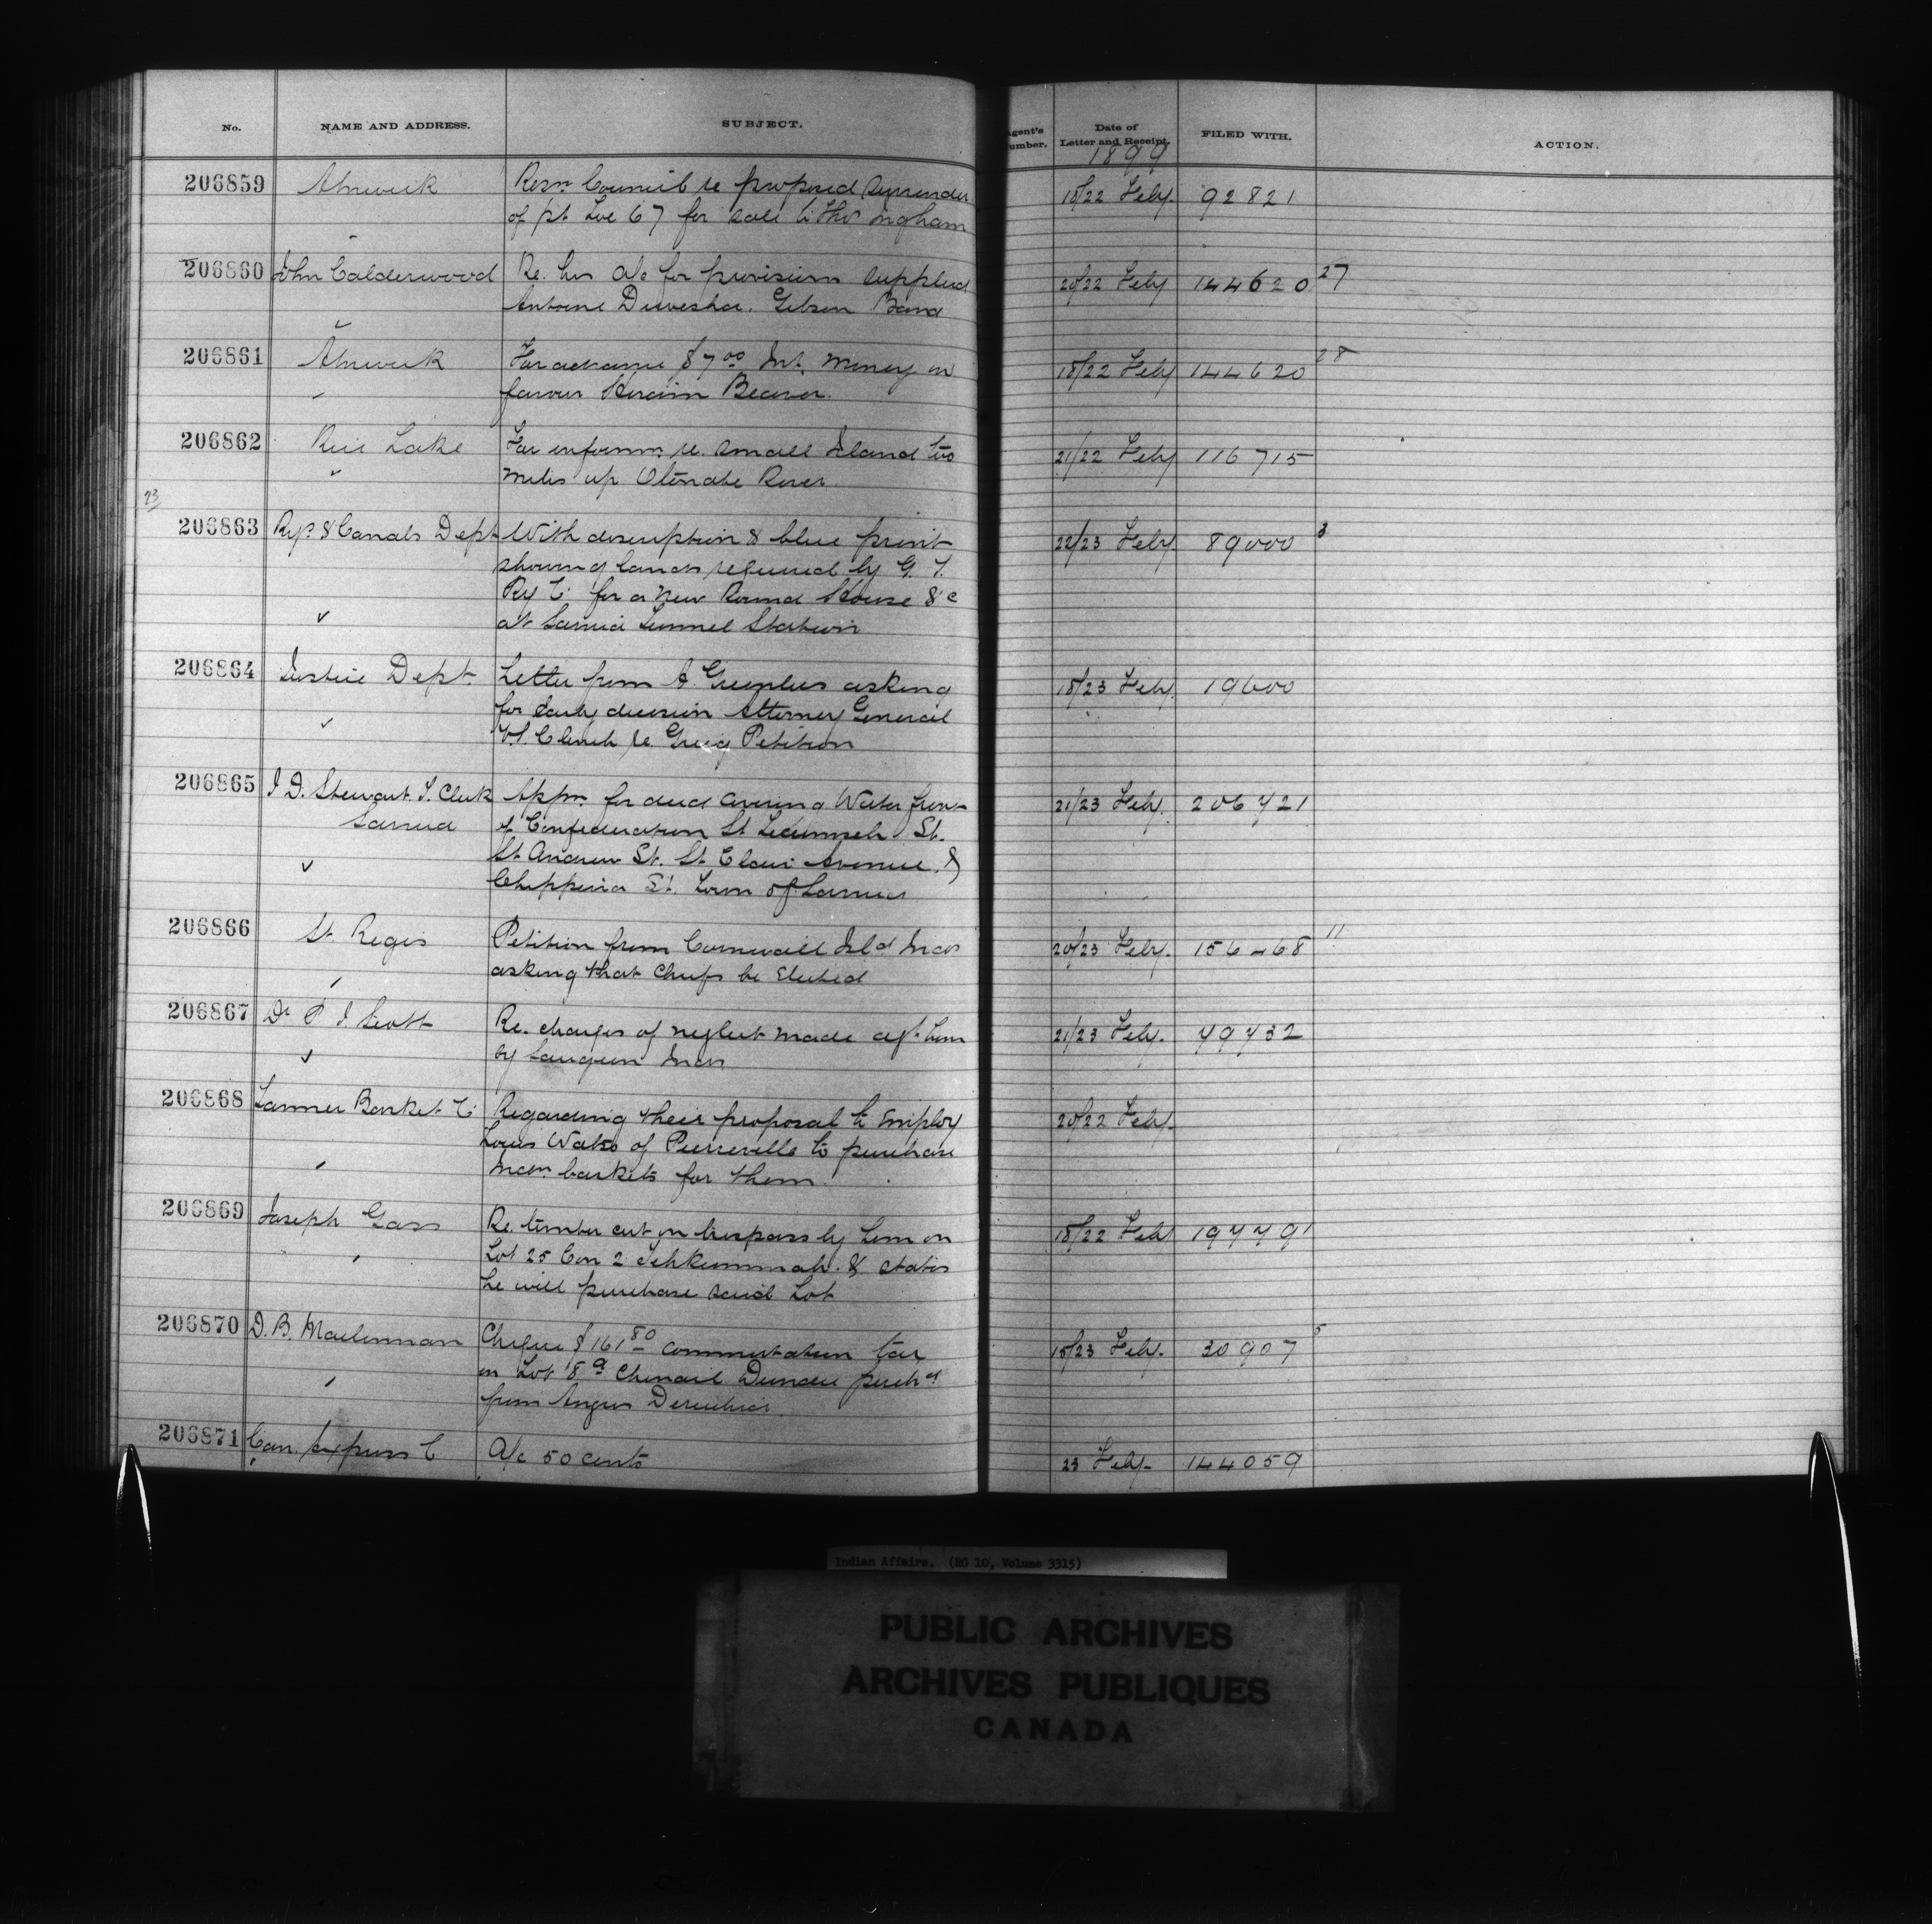 No. NAME AND ADDRESS. SUBJECT. Agent's Number. Date of Letter and Receipt. FILED WITH. ACTION.
1899
206859 Alnwick Resn. Council re proposed Surrender 18/22 Feby. 92821
of pt Lot 67 for sale to Thos Ingham
206860 John Calderwood Re. his a/c for provisions supplied 20/22 Feby 144620 27
Antoine Gibson Band
206861 Alnwick For advance $7 00 Int. Money in 18/22 Feby 144620 28
favour Hiram Beaver.
206862 Rice Lake For informn. re. small Island two 21/22 Feby 116715
miles up Otonabe River
23
206863 Rys. & Canals Dept With description & blue print 22/23 Feby. 89000 3
showing lands required by G. T.
Ry Co. for a new Round House &c
at Sarnia Tunnel Station
206864 Justice Dept. Letter from A Greenlees asking 18/23 Feby. 19600
for early decision Attorney General
vs. Clench re. Greig Petition
206865 J D. Stewart. T. Clerk Appn. for deed covering Water front 21/23 Feby. 206421
Sarnia of Confederation St Tecumseh St.
St Andrew St. St Clair Avenue &
Chippewa St. Town of Sarnia
206866 St. Regis Petition from Cornwall Isld Inds 20/23 Feby. 156468 11
asking that Chiefs be Elected
206867 Dr P J Scott Re. charges of neglect made agt. him 21/23 Feby. 49432
by Saugeen Inds
206868 Basket Co Regarding their proposal to Employ 20/22 Feby.
Louis Watso of Pierreville to purchase
Indn. baskets for them
206869 Joseph Gass Re. timber cut in trespass by him on 18/22 Feby 194491
Lot 25 Con 2 Tehkummah. & states
he will purchase said Lot
206870 D. B. Maclennan Cheque $161 80 commutation tax 18/23 Feb. 30907 5
on Lot 8 a Chenail Dundee purchd
from Angus
206871 Can. Express Co A/c 50 cents 23 Feby. 144059
Indian Affairs. (RG 10, Volume 3315)
PUBLIC ARCHIVES
ARCHIVES PUBLIQUES
CANADA